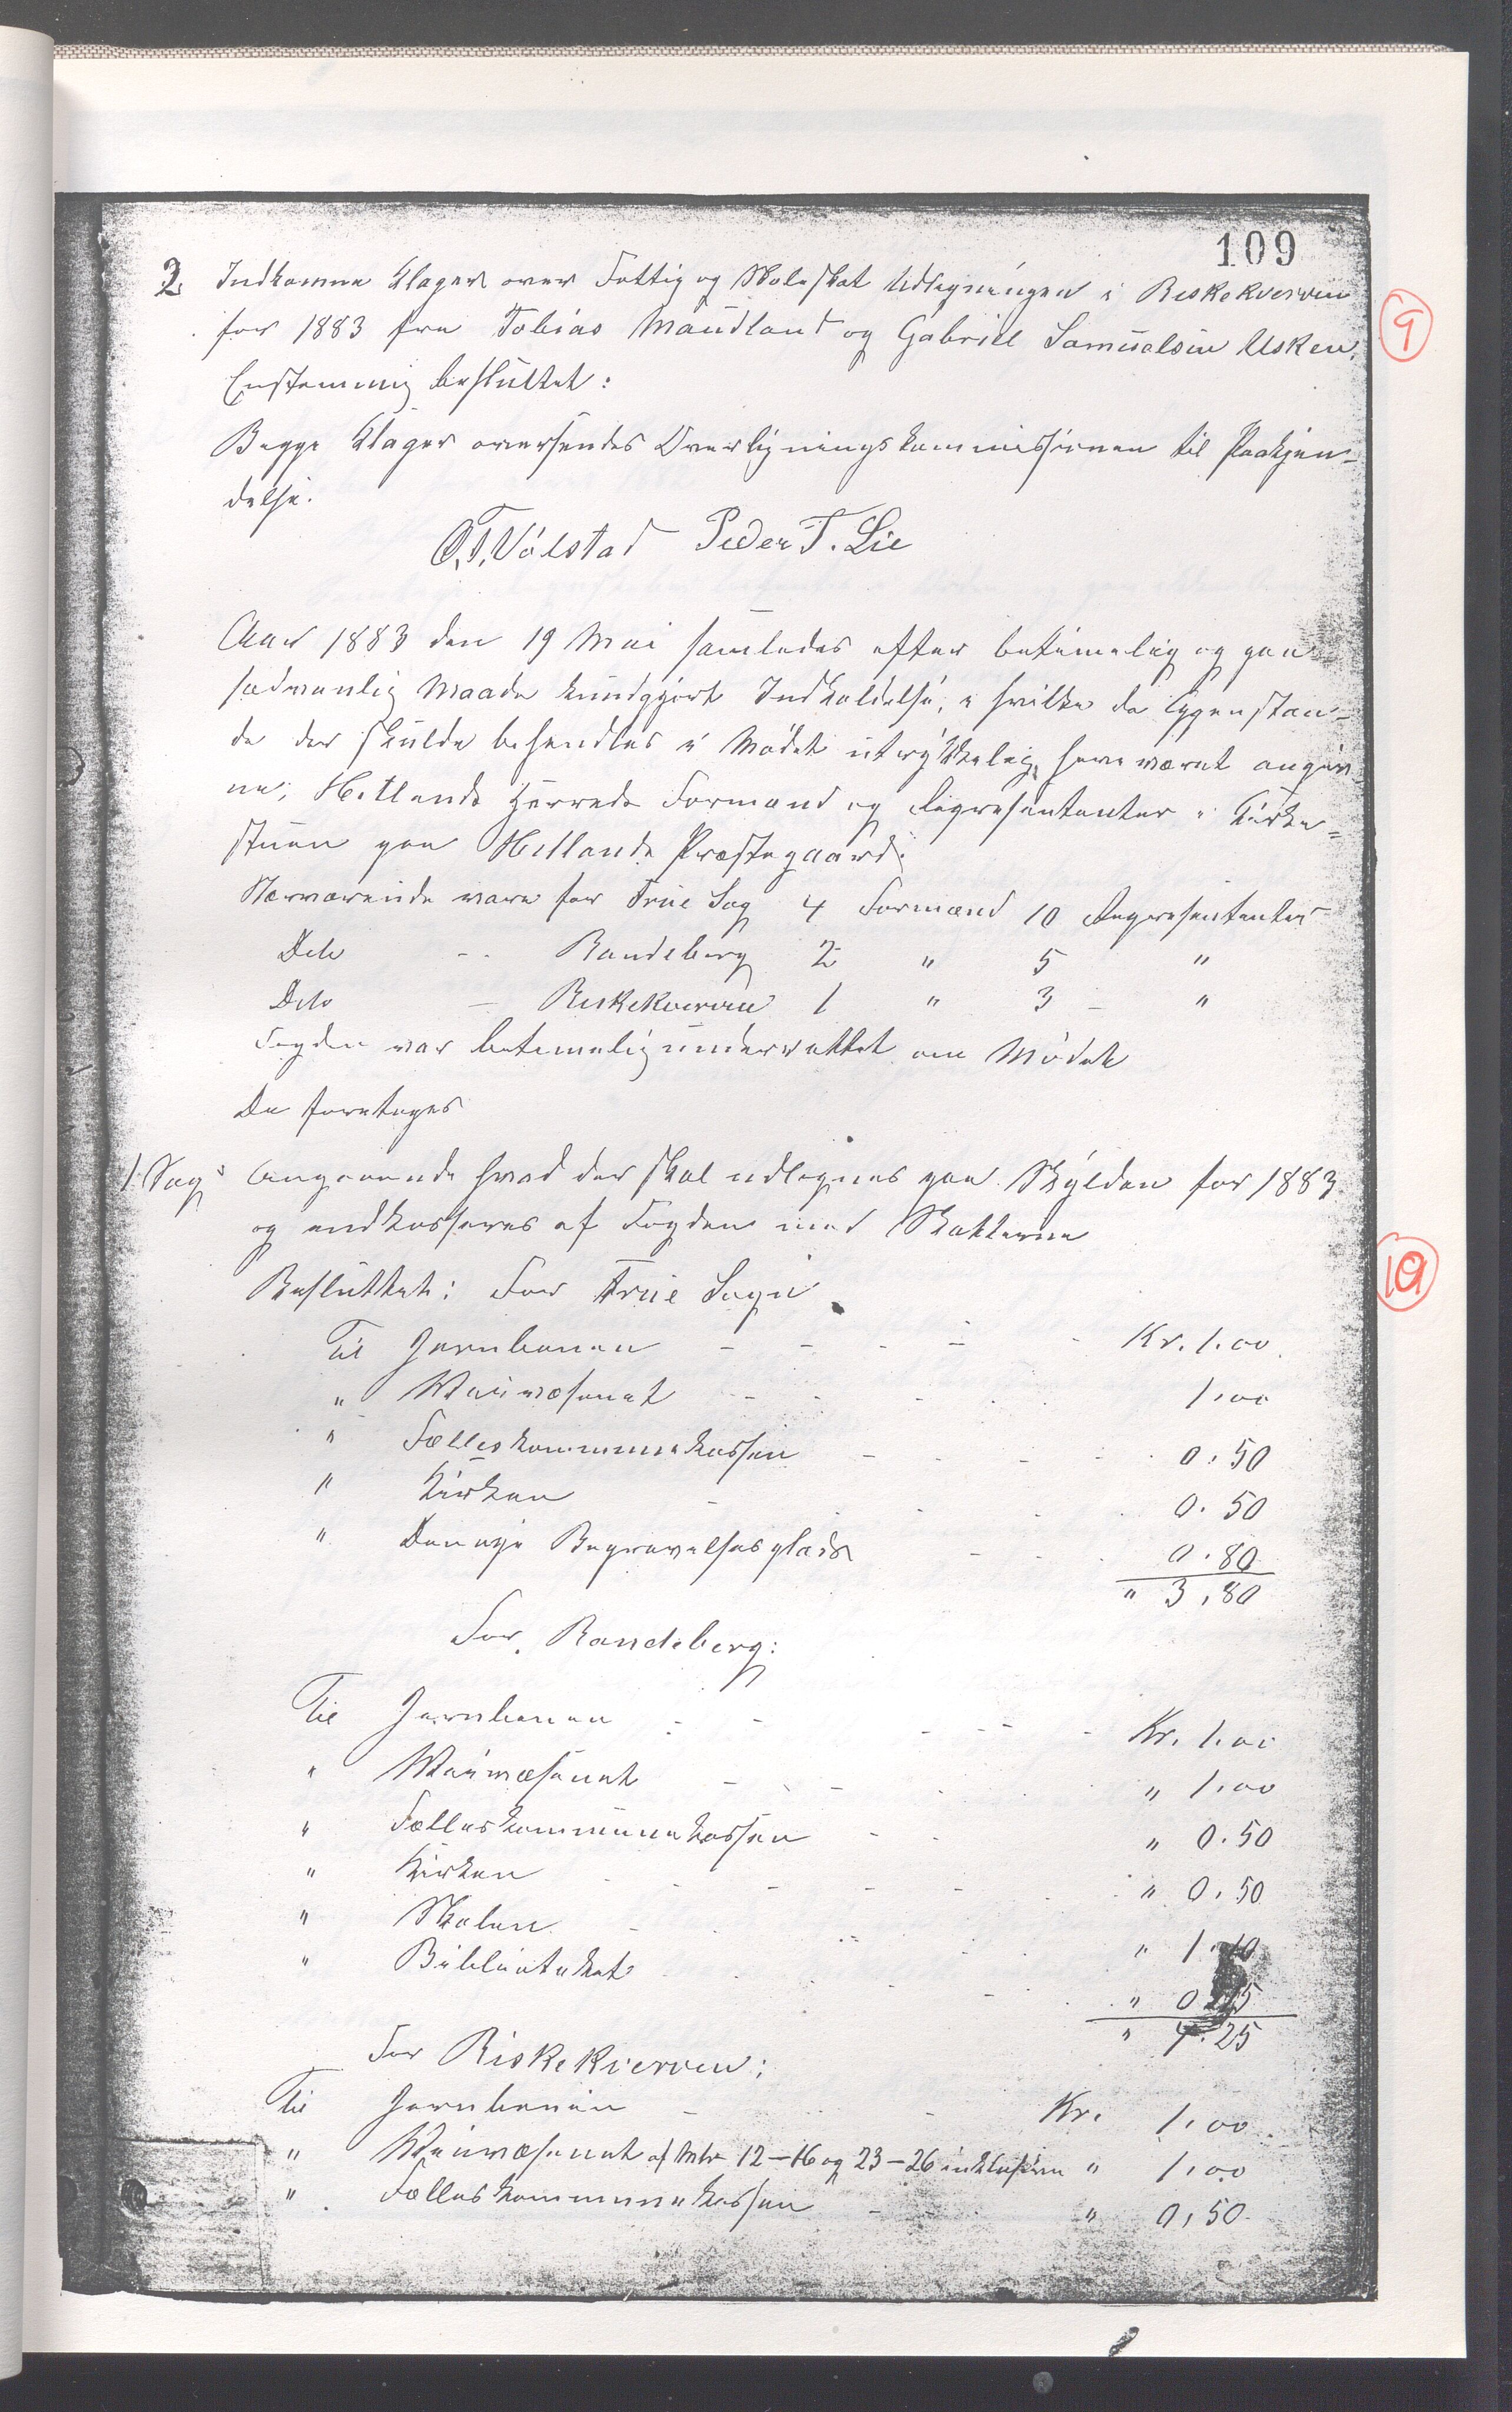 109
2. Indkomne Klager over Fattig og Skoleskat Udlegningen i Riskekverven
9
for 1883 fra Tobias Maudland og Gabriel Samuelsen Usken.
Enstemmig besluttet:
Begge Klager oversendes Overligningskommissionen til Paakjen-
delse.
O.T. Volstad Peder T. Lie
Aar 1883 den 19 Mai samledes efter betimelig og paa
sædvanlig Maade kundgjort Indkaldelse, i hvilken de Gjenstan-
de der skulde behandles i Mødet udtrykkelig have været angiv-
ne, Hetlands Herreds Formænd og Repræsentanter i Kirke-
stuen paa Hetlands Præstegaard.
Nærværende vare for Frue Sog 4 Formænd 10 Repræsentanter
Dito - Randeberg 2 " 5 "
Dito - Riskekverven 1 " 3 - "
Fogden var betimelig underrettet om Mødet
Da foretages
1 Sag: Angaaende hvad der skal udlegnes paa Skylden for 1883
og indkasseres af Fogden med Skatterne
10
Besluttet: For Frue Sogn
Til Jernbanen - - - - Kr. 1.00
" Veivæsenet - - - - 1.00
" Fælleskommunekassen - - - - 0.50
" Kirken - - - - 0.50
" Den nye Begravelsesplads - - - 0.80
" 3.80
For Randeberg:
Til Jernbanen - - - - - Kr. 1.00
" Veivæsenet - - - " 1.00
" Fælleskommunekassen - - " 0.50
" Kirken - - - - - " 0.50
" Skolen - - - - " 1.10
" Bibliotheket - - - " 0.15
" 4.25
For Riskekverven:
Til Jernbanen - - - Kr. 1.00
" Veivæsenet af Mtr 12-16 og 23-26 inklusive " 1.00
" Fælleskommunekassen - - " 0.50